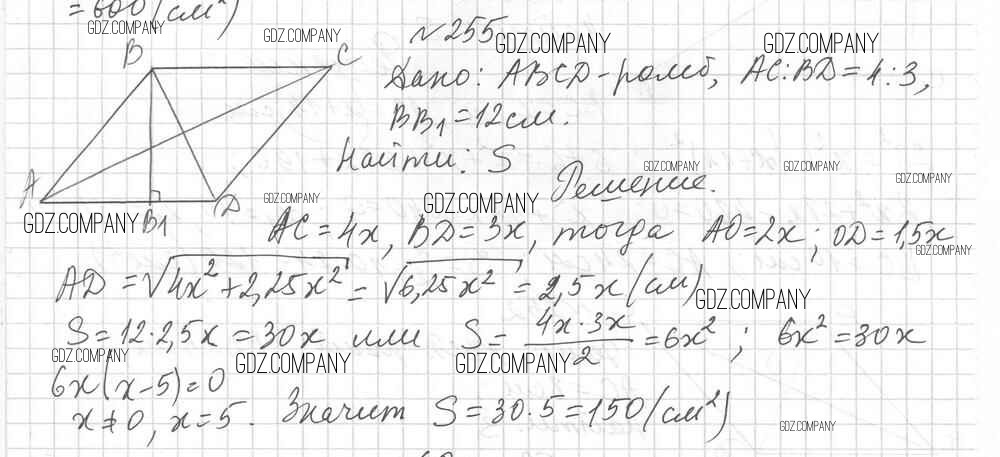 = 600 (см²)
GDZ.COMPANY
GDZ.COMPANY
N 255
GDZ.COMPANY
GDZ.COMPANY
B
C
Дано: ABCD - ромб, AC:BD = 4:3,
BB₁ = 12 см.
Найти: S
GDZ.COMPANY
GDZ.COMPANY
GDZ.COMPANY
Решение.
A
GDZ.COMPANY
B1
D
GDZ.COMPANY
GDZ.COMPANY
AC = 4x, BD = 3x, тогда AO = 2x; OD = 1,5x
GDZ.COMPANY
AD = √4x² + 2,25x² = √6,25x² = 2,5x (см)
GDZ.COMPANY
S = 12·2,5x = 30x или S = 4x·3x/2 = 6x²; 6x² = 30x
GDZ.COMPANY
GDZ.COMPANY
GDZ.COMPANY
6x(x-5) = 0
x ≠ 0, x = 5. Значит S = 30·5 = 150 (см²)
GDZ.COMPANY